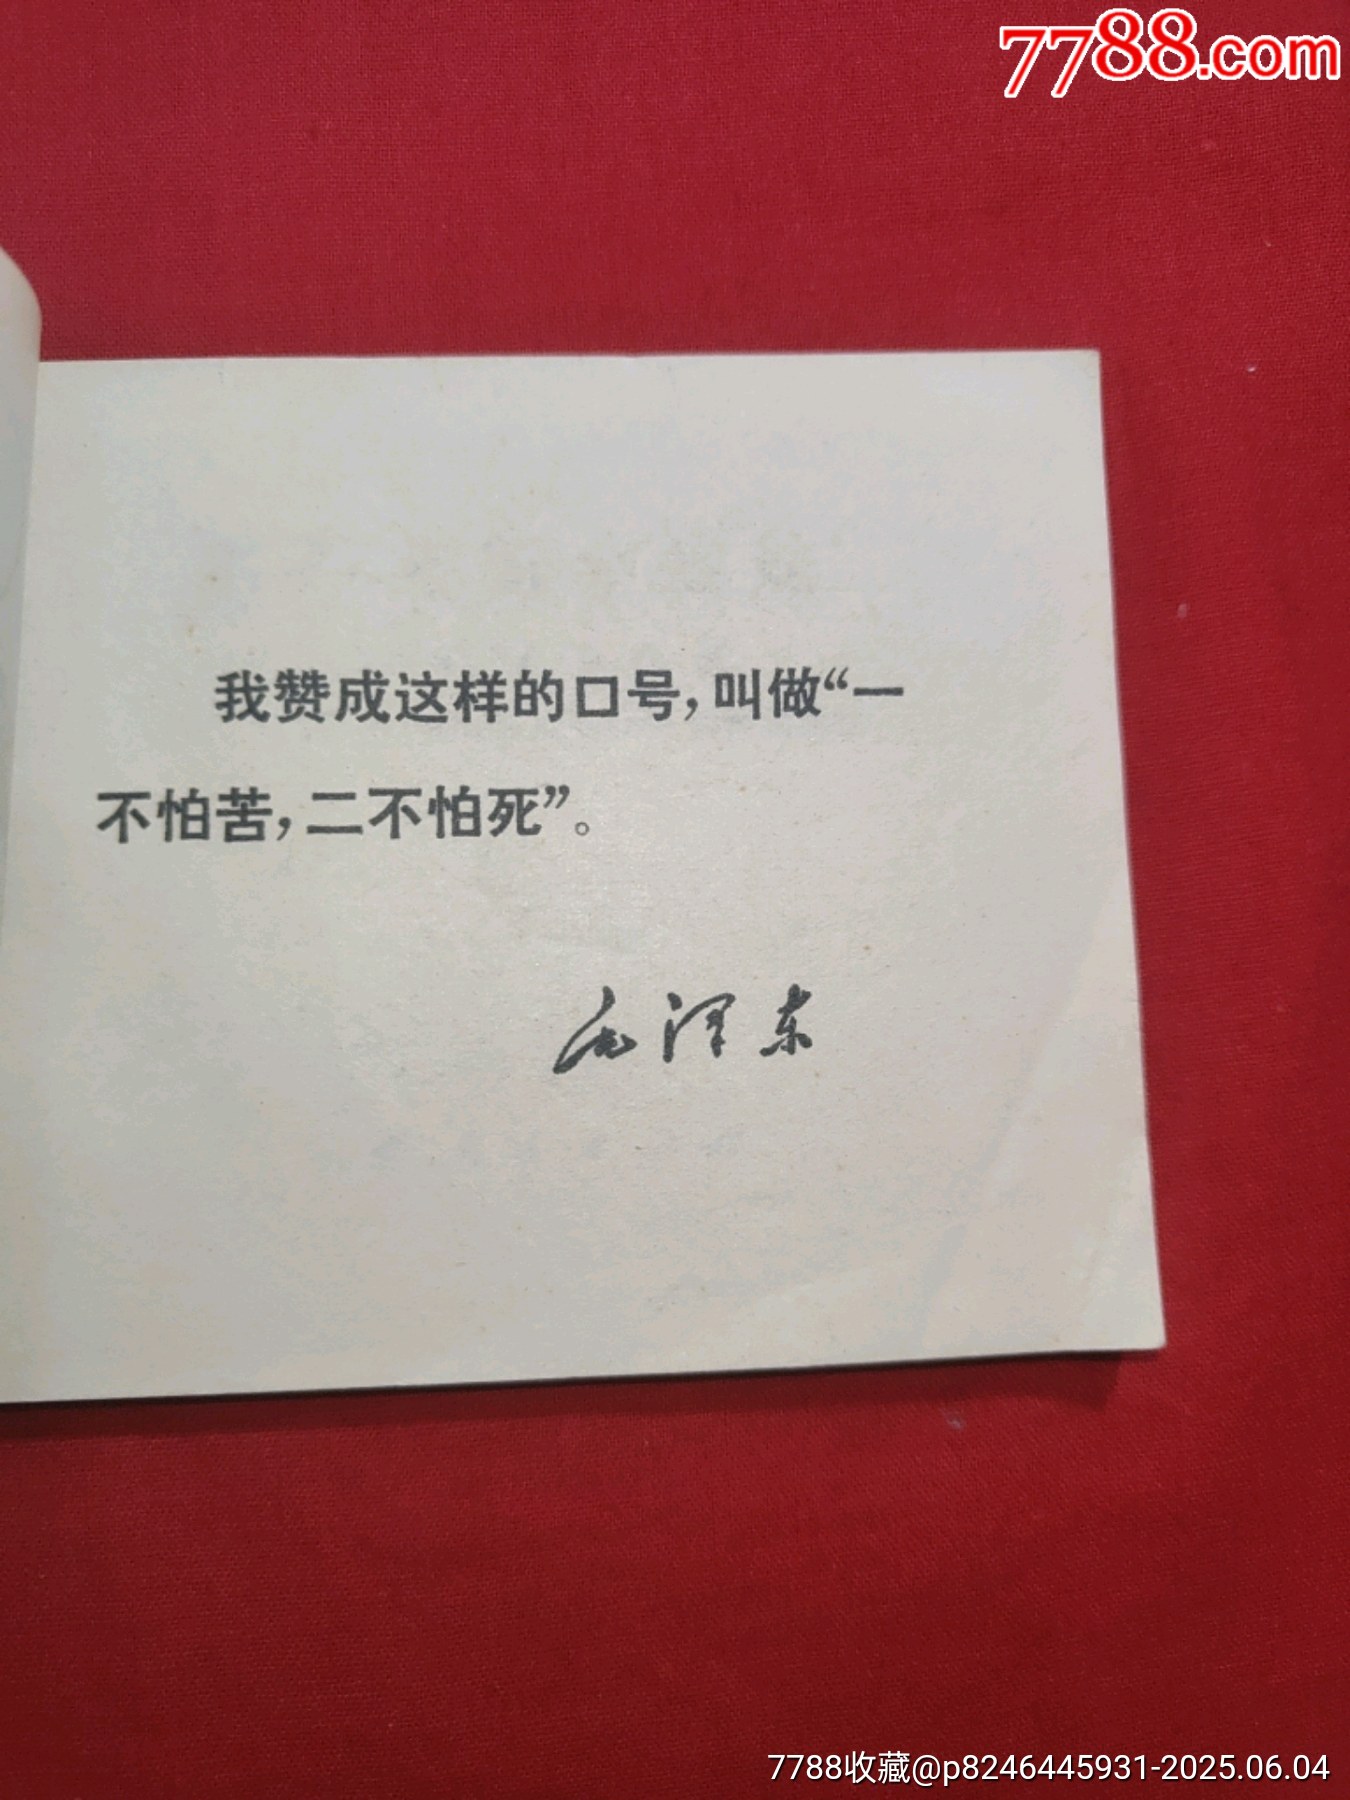 7788.com
我赞成这样的口号，叫做“一
不怕苦，二不怕死”。
毛泽东
7788收藏@p8246445931-2025.06.04